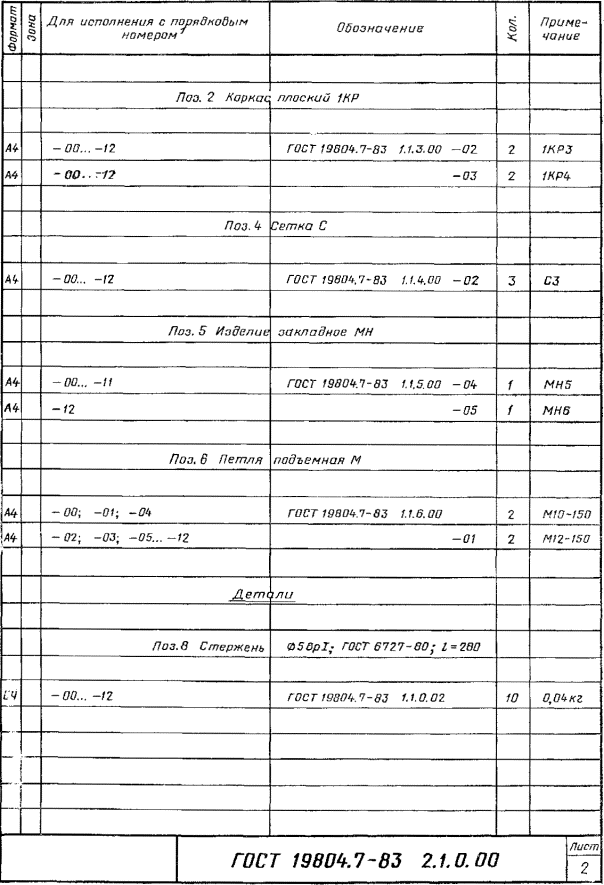 Формат
Зона
Для исполнения с порядковым номером¹
Обозначение
Кол.
Примечание
Поз. 2 Каркас плоский 1КР
А4 -00... -12 ГОСТ 19804.7-83 1.1.3.00 -02 2 1КР3
А4 -00...-12 -03 2 1КР4
Поз. 4 Сетка С
А4 -00... -12 ГОСТ 19804.7-83 1.1.4.00 -02 3 С3
Поз. 5 Изделие закладное МН
А4 -00... -11 ГОСТ 19804.7-83 1.1.5.00 -04 1 МН5
А4 -12 -05 1 МН6
Поз. 6 Петля подъемная М
А4 -00; -01; -04 ГОСТ 19804.7-83 1.1.6.00 2 М10-150
А4 -02; -03; -05... -12 -01 2 М12-150
Детали
Поз. 8 Стержень ⌀5ВрI; ГОСТ 6727-80; l=280
БЧ -00... -12 ГОСТ 19804.7-83 1.1.0.02 10 0,04кг
ГОСТ 19804.7-83 2.1.0.00
Лист
2